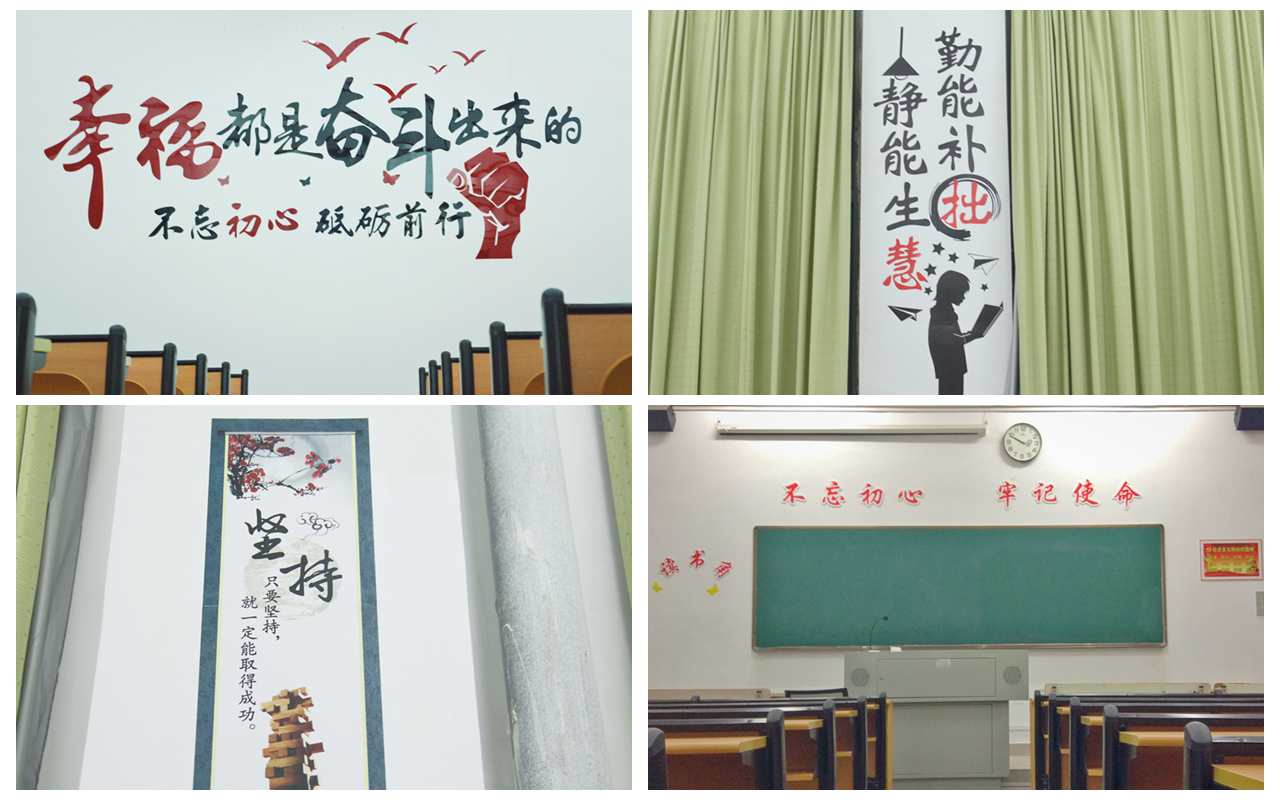 幸福都是奋斗出来的
不忘初心 砥砺前行
勤能补拙
静能生慧
坚持
只要坚持，
就一定能取得成功。
不忘初心 牢记使命
读书角